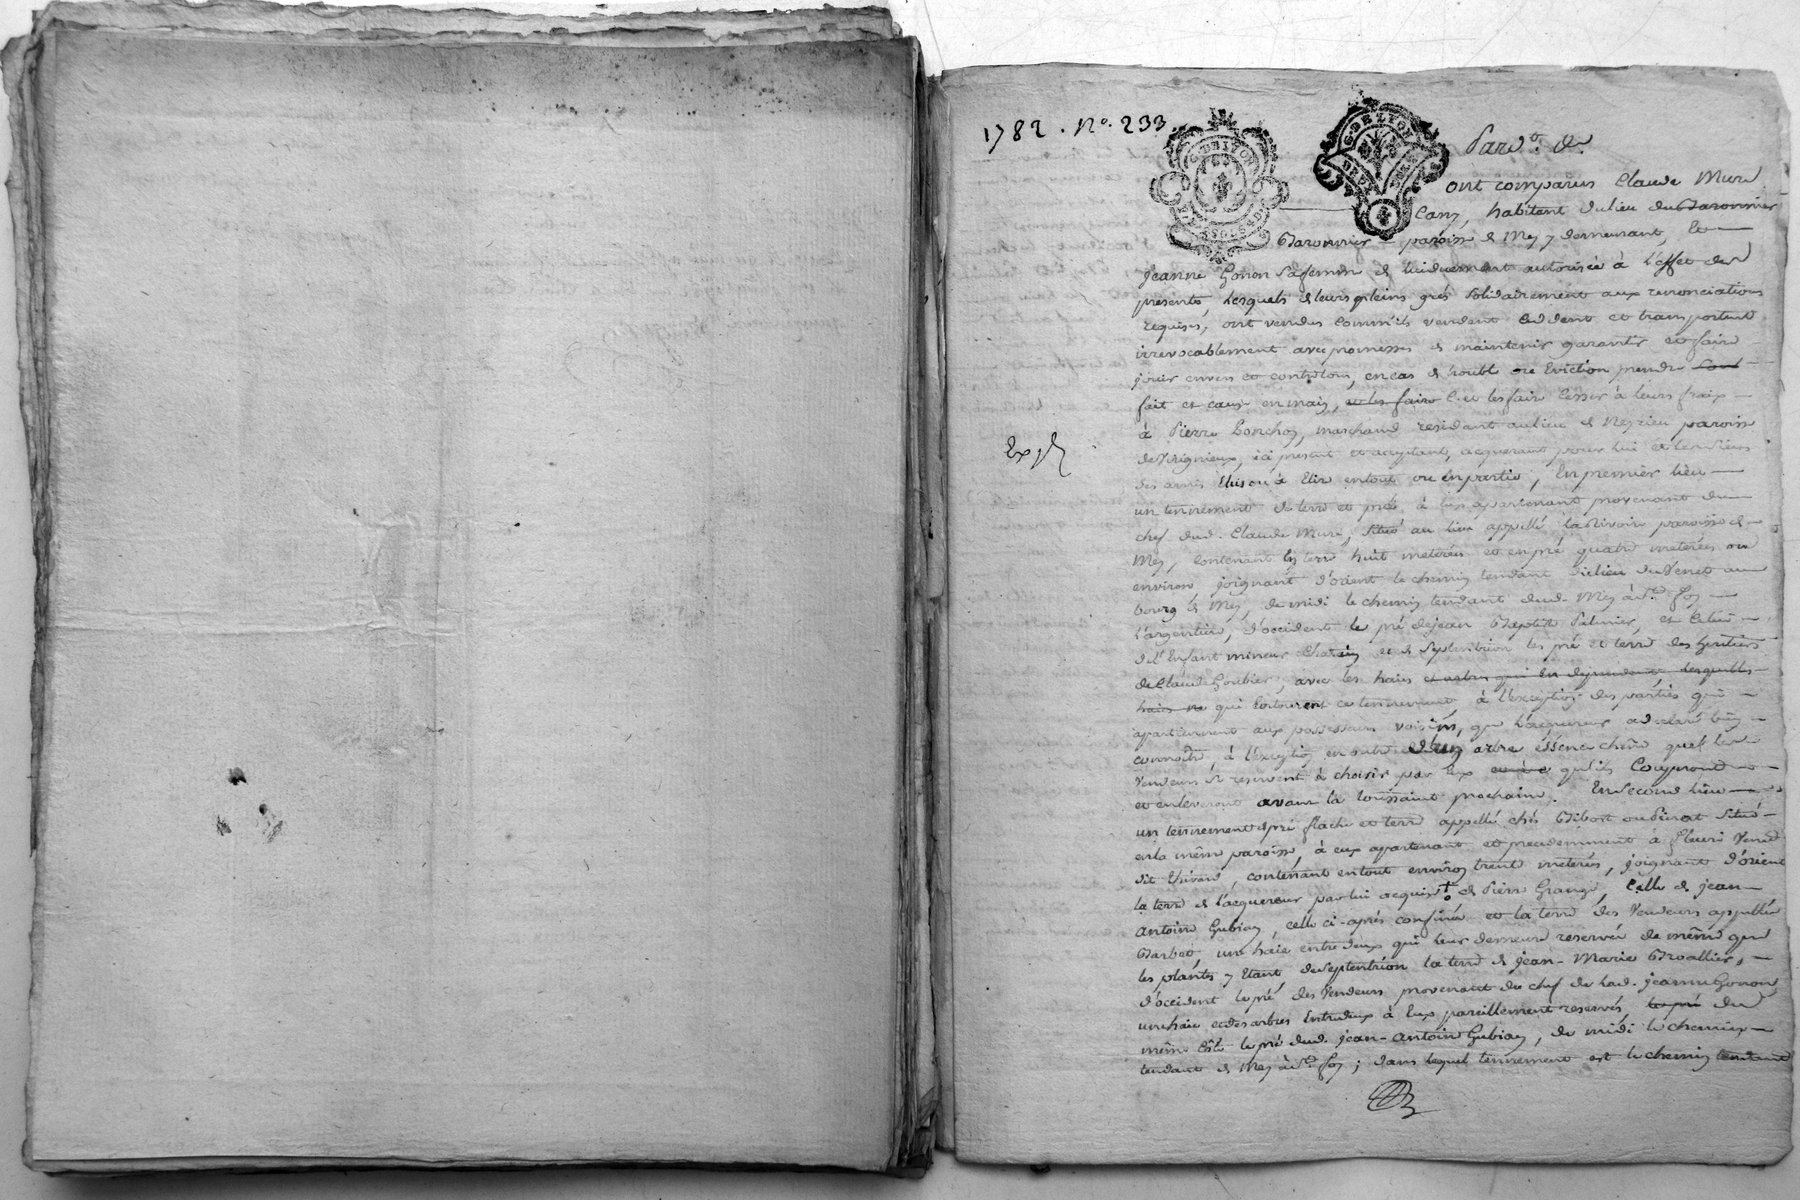 1782. N.º 233
Pard.t &.
ont comparus Claude Mure
habitant du lieu du Baronnier
Baronnier paroisse de Mey y demeurant, et
Jeanne Gonon sa femme de lui duement autorisée à l'effet des
presents, lesquels de leurs pleins grés solidairement aux renonciations
requises, ont vendus comm'ils vendent cèdent et transportent
irrevocablement avec promesses de maintenir garantir et faire
jouir envers et contre tous, en cas de trouble ou eviction prendre
fait et cause en main, et les faire cesser à leurs fraix
à Pierre Ponchon, marchand residant au lieu de paroisse
ici present et acceptant, acquerant pour lui et les siens
des amis elus ou à elire en tout ou en partie, En premier lieu
un tennement de terre et pré à eux apartenant provenant du
chef dud. Claude Mure, situé au lieu appellé la Rivoire paroisse de
Mey, contenant en terre huit meterées et en pré quatre meterées ou
environ joignant d'orient le chemin tendant du lieu du Venet au
bourg de Mey, de midi le chemin tendant dud. Mey à Ste foy
l'argentiere, d'occident le pré de jean Baptiste Palmier, et celui
de l'Enfant mineur et de septentrion les pré et terre des heritiers
de Claude Goubier, avec les haies et arbres qui en dependent, lesquelles
haies ne qui entourent ce tennement, à l'exception des parties qui
apartiennent aux possesseurs voisins, que l'acquereur a declaré bien
connoitre, à l'exception en outre d'un arbre éssence chêne que les
Vendeurs se reservent à choisir par eux qu'ils couperont
et enleveront avant la toussaint prochaine. En second lieu
un tennement de pré flache et terre appellé chés Ribost ou situé
en la même paroisse, à eux apartenant et precedemment à fleuri
dit contenant en tout environ trente meterées, joignant d'orient
la terre de l'acquereur par lui acquist. de Pierre Grange, celle de jean
antoine Gubian, celle ci-après confinée et la terre des Vendeurs appellée
Barbat, une haie entredeux qui leur demeure reservée de même que
les plants y etant de septentrion la terre de jean-Marie Broallier,
d'occident le pré des Vendeurs provenant du chef de lad. jeanne Gonon
une haie et des arbres entredeux à eux pareillement reservés le pré du
même côté le pré dud. jean-antoine Gubian, de midi le chemin
tendant de Mey à Ste foy; dans lequel tennement est le chemin tendant